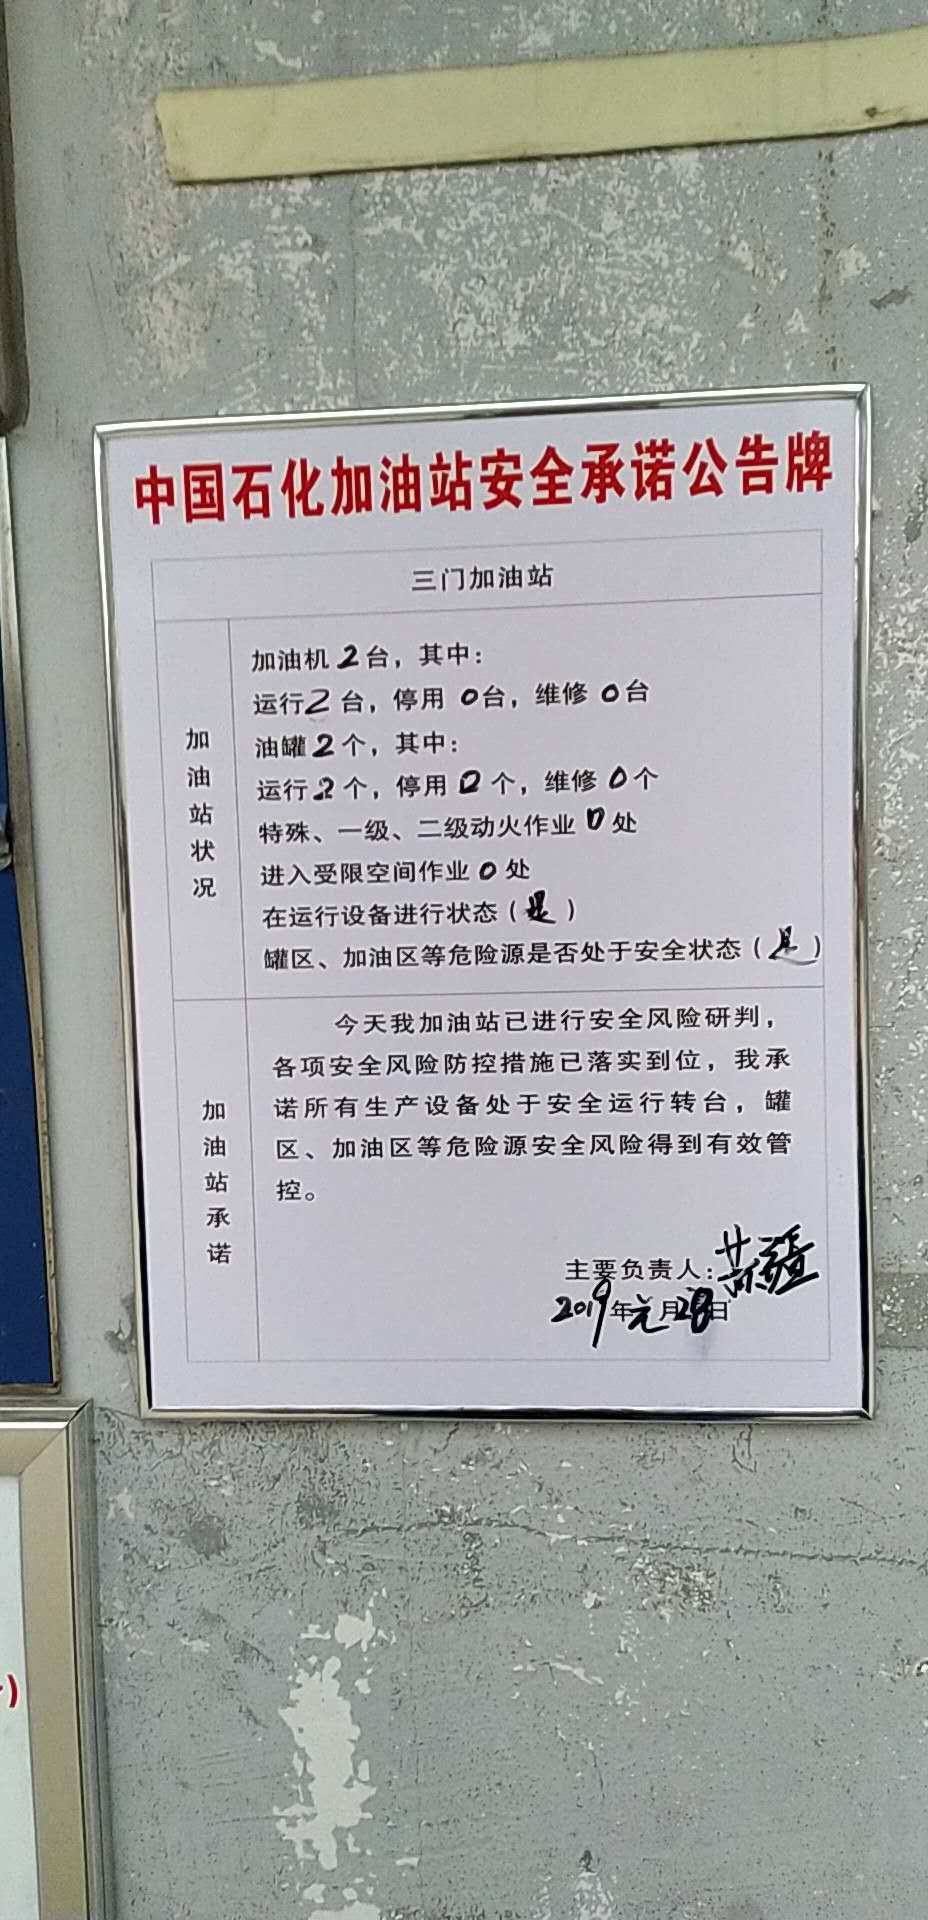 中国石化加油站安全承诺公告牌
三门加油站
加油站状况
加油机2台，其中：
运行2台，停用0台，维修0台
油罐2个，其中：
运行2个，停用0个，维修0个
特殊、一级、二级动火作业0处
进入受限空间作业0处
在运行设备进行状态（是）
罐区、加油区等危险源是否处于安全状态（是）
加油站承诺
今天我加油站已进行安全风险研判，
各项安全风险防控措施已落实到位，我承
诺所有生产设备处于安全运行转台，罐
区、加油区等危险源安全风险得到有效管
控。
主要负责人：
2019年元月28日